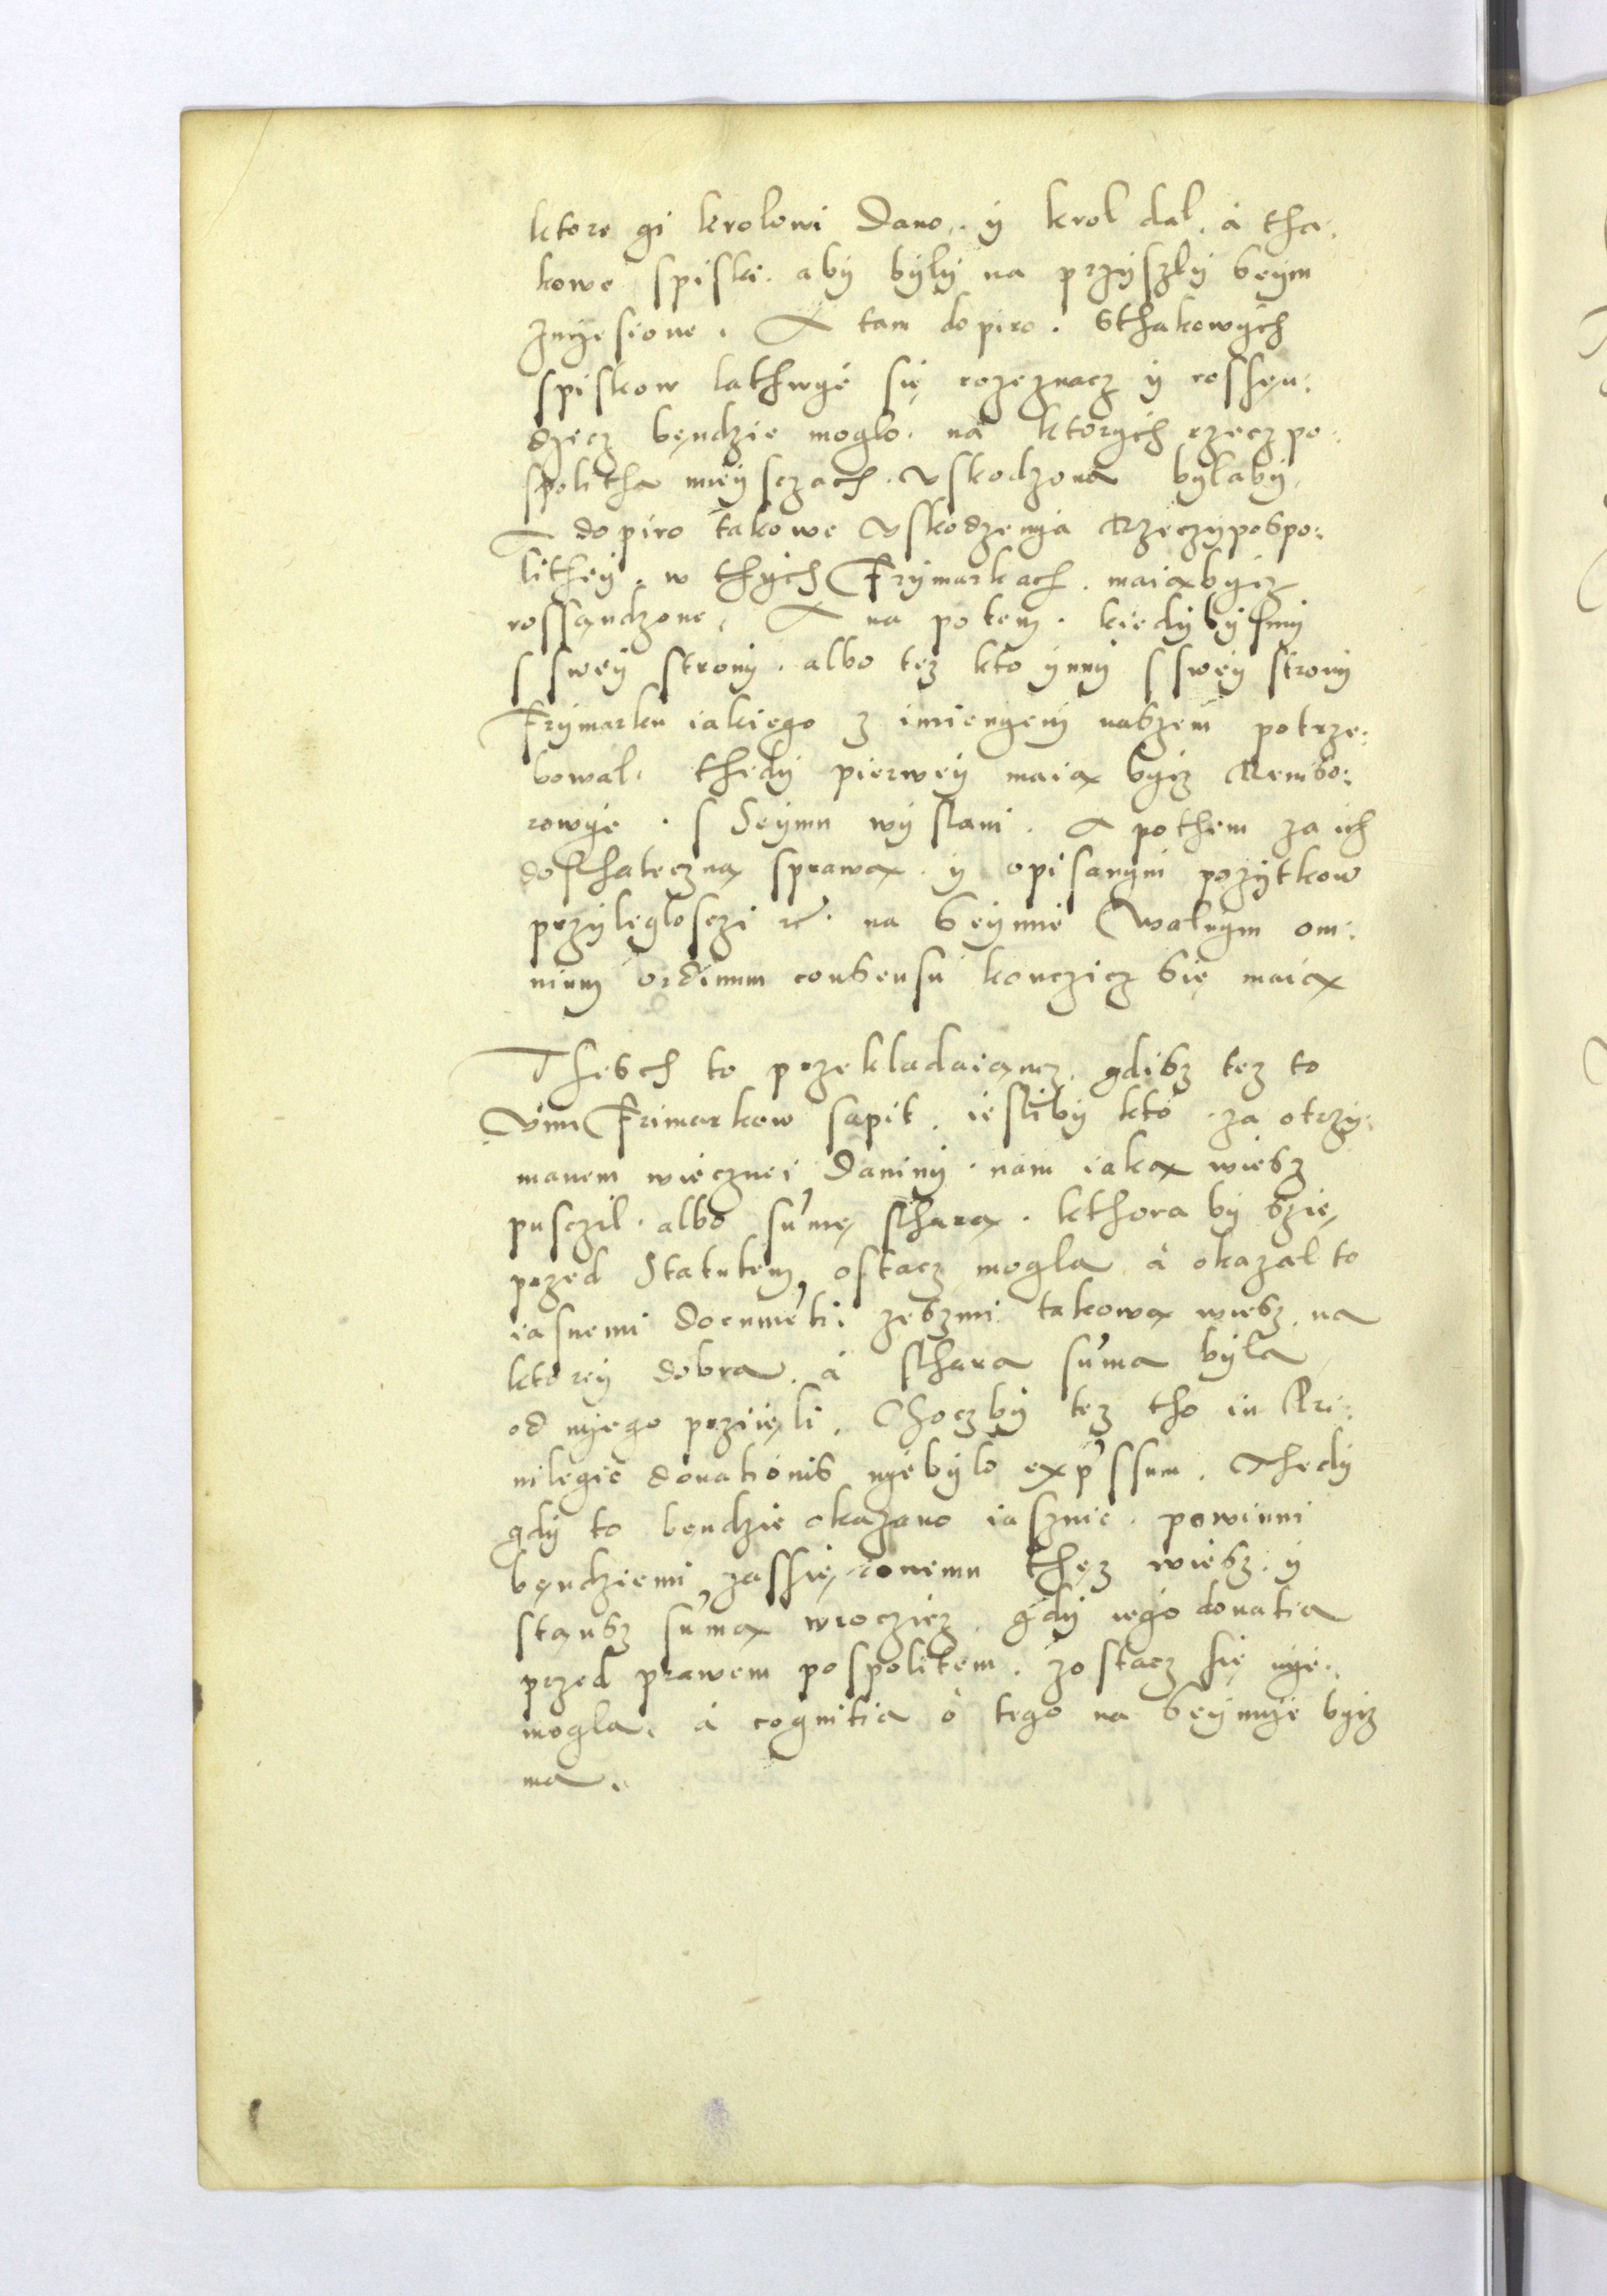 ktore gi krolowi dano. ÿ krol dal. á tha.
kowe spiski. abÿ bÿlÿ na przÿszlÿ seÿm
znyesione. A tam dopiro. sthakowÿch
spiskow lathwyé się rozeznacz ÿ rossęn:
dzecz będzie moglo. ná ktorÿch rzeczpo:
spolitha mieÿsczach. vskodzona bÿlabÿ.
A dopiro takowe vskodzenya Rzeczypospo:
litheÿ. w thÿch Frÿmarkach. maiąbycz
rossąndzone. A na potem. kiedÿbÿsmÿ
s sweÿ stronÿ. albo tez kto ÿnnÿ s sweÿ stronÿ
Frÿmarku iakiego z imienyem naszem potrze:
bowal. thedÿ pierweÿ maią bycz Rewiso:
rowye. s Seÿmu wÿslani. A pothem za ich
dosthateczną sprawą. ÿ opisanym pozÿtkow
przÿleglosczi etc. na Seÿmie Walnym om:
nium ordinum consensu konczicz się maią
Thesch to przekladaiąncz. gdisz tez to
vim Frimarkow sapit. iesliby kto. za otrzÿ:
manem wiecznei daninÿ. nam iaką wiesz
pusczil. albo sumę stharą. kthora bÿ szię
przed Statutem ostacz mogla á okazal to
iasnemi documẽti. zeszmi takową wiesz. na
ktoreÿ dobra. á sthara suma bÿla
od nyego prziięli. Choczbÿ tez tho in Pri:
uilegio donationis nyebÿlo exp̃ssum. Thedÿ
gdÿ to będzie okazano iasznie. powinni
będziemi zassię onemu thęz wiesz. ÿ
stąnsz sumą wroczicz. gdÿ iego donatia
przed prawem pospolitem. zostacz się nye.
mogla. á cognitia o tego na Seÿmye bycz
ma.